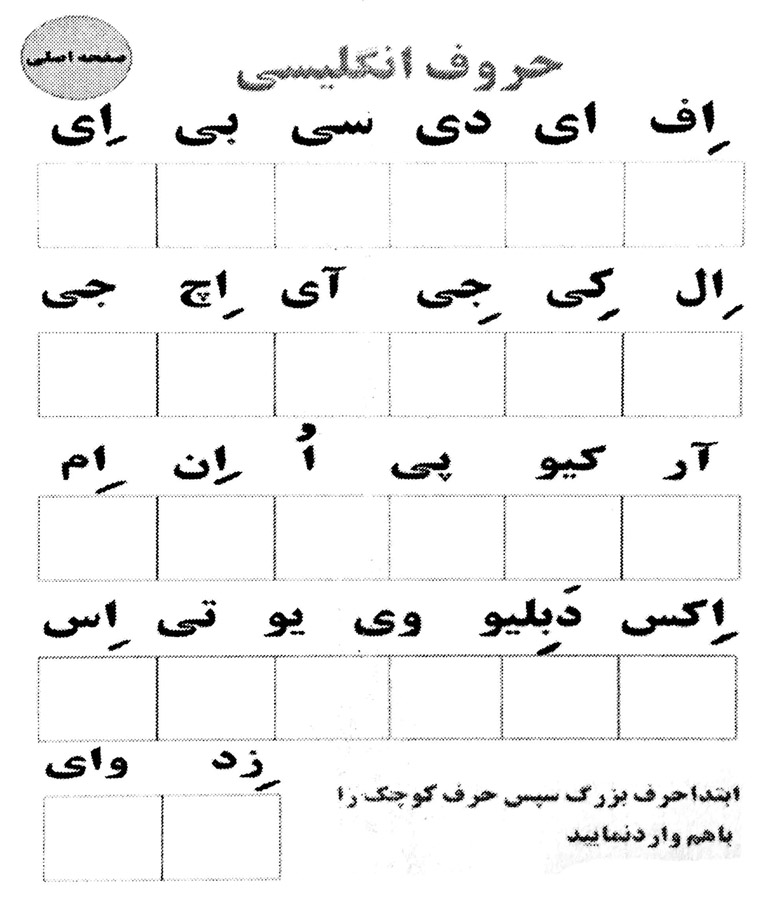 حروف انگلیسی
صفحه اصلی
اِف ای دی سی بی اِی
اِل کِی جِی آی اِچ جی
آر کیو پی اُ اِن اِم
اِکس دَبِلیو وی یو تی اِس
زِد وای
ابتدا حرف بزرگ سپس حرف کوچک را
باهم وارد نمایید